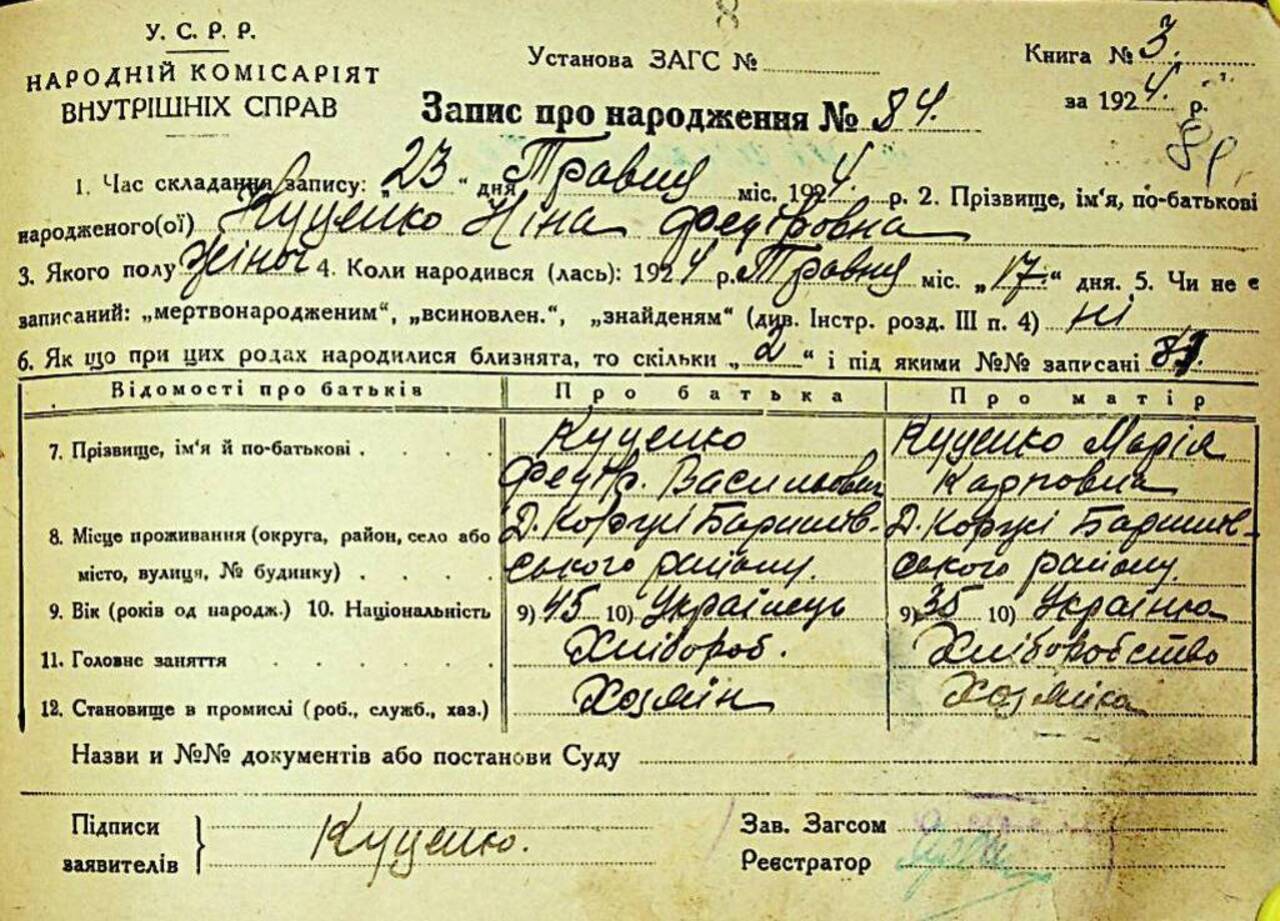 У. С. Р. Р.
НАРОДНІЙ КОМІСАРІЯТ
ВНУТРІШНІХ СПРАВ
Установа ЗАГС №
Книга № 3.
за 1924. р.
Запис про народження № 84.
1. Час складання запису: „23“ дня Травня міс. 1924. р. 2. Прізвище, ім'я, по-батькові
народженого(ої) Куценко Ніна Федіровна
3. Якого полу жіноч 4. Коли народився (лась): 1924 р. Травня міс. „17.“ дня. 5. Чи не є
записаний: „мертвонародженим“, „всиновлен.“, „знайденям“ (див. Інстр. розд. III п. 4) ні
6. Як що при цих родах народилися близнята, то скільки „2“ і під якими №№ записані
Відомості про батьків Про батька Про матір
7. Прізвище, ім'я й по-батькові . . . . Куценко Куценко Марія
Федір. Васильович Карповна
8. Місце проживання (округа, район, село або Д. Коржі Баришів- Д. Коржі Баришів-
місто, вулиця, № будинку) . . . . ського району. ського району.
9. Вік (років од народж.) 10. Національність 9) 45 10) Українець 9) 35 10) Українка
11. Головне заняття . . . . . Хлібороб. Хліборобство
12. Становище в промислі (роб., служб., хаз.) Хозяїн Хозяйка
Назви и №№ документів або постанови Суду
Підписи
заявителів } Куценко.
Зав. Загсом
Реєстратор